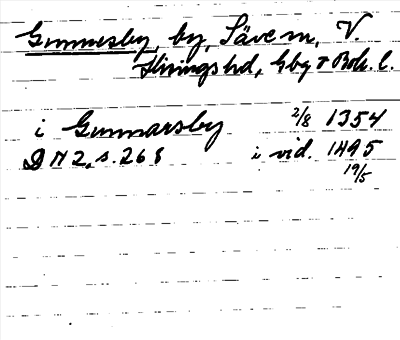 Gunnesby, by, Säve sn, V.
Hisings hd, Gbg o Boh. l.
i Gunnarsby 2/8 1354
DN 2, s. 268 i vid. 1495
19/5